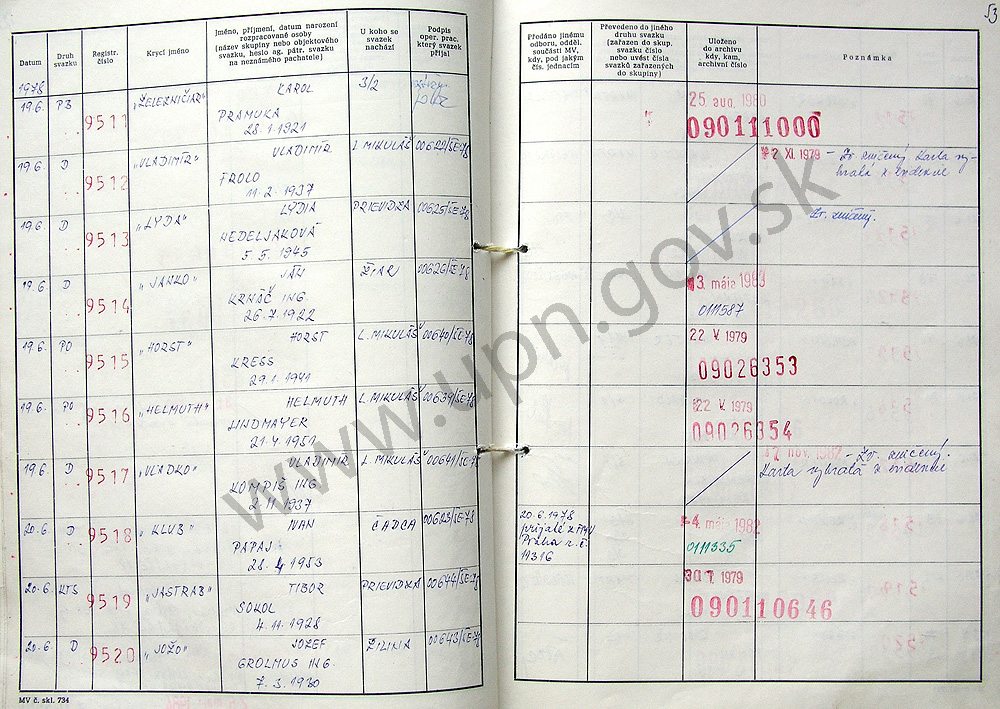 Datum
Druh svazku
Registr. číslo
Krycí jméno
Jméno, příjmení, datum narození
rozpracované osoby
(název skupiny nebo objektového
svazku, heslo ag. pátr. svazku
na neznámého pachatele)
U koho se
svazek
nachází
Podpis
oper. prac.
který svazek
přijal
Předáno jinému
odboru, odděl.
součásti MV,
kdy, pod jakým
čís. jednacím
Převedeno do jiného
druhu svazku
(zařazen do skup.
svazku číslo
nebo uvést čísla
svazků zařazených
do skupiny)
Uloženo
do archivu
kdy, kam,
archivní číslo
Poznámka
53
1978
19.6. PB 9511 "ŽELEZNIČIAR" KAROL 3/2
PRAMUKA
28.1.1921
25. aug. 1980
090111000
19.6. D 9512 "VLADIMÍR" VLADIMÍR L. MIKULÁŠ 00622/ŠE-78
FROLO
11.2.1937
2. XI. 1979 - Zv. zničený Karta vy-
bratá z evidencie
19.6. D 9513 "LYDA" LÝDIA PRIEVIDZA 00625/ŠE-78
NEDELJAKOVÁ
5.5.1945
Zv. zničený.
19.6. D 9514 "JANKO" JÁN ŽIAR 00626/ŠE-78
KRNÁČ ING.
26.7.1922
3. mája 1983
0111587
19.6. PO 9515 "HORST" HORST L. MIKULÁŠ 00640/ŠE-78
KRESS
29.1.1941
22. V. 1979
09026353
19.6. PO 9516 "HELMUTH" HELMUTH L. MIKULÁŠ 00639/ŠE-78
LINDMAYER
21.4.1951
22. V. 1979
09026354
19.6. D 9517 "VLADKO" VLADIMÍR L. MIKULÁŠ 00641/ŠE-78
KOMPIŠ ING.
2.11.1937
nov. 1982 - Zv. zničený.
Karta vybratá z evidencie
20.6. D 9518 "KLUB" IVAN ČADCA 00623/ŠE-78
PAPAJ
28.4.1953
20.6.1978
prijaté z
Praha
11316
4. mája 1982
0111335
20.6. KTS 9519 "JASTRAB" TIBOR PRIEVIDZA 00644/ŠE-78
SOKOL
4.11.1928
1979
090110646
20.6. D 9520 "JOŽO" JOZEF ŽILINA 00643/ŠE-78
GROLMUS ING.
7.3.1930
MV č. skl. 734
www.upn.gov.sk